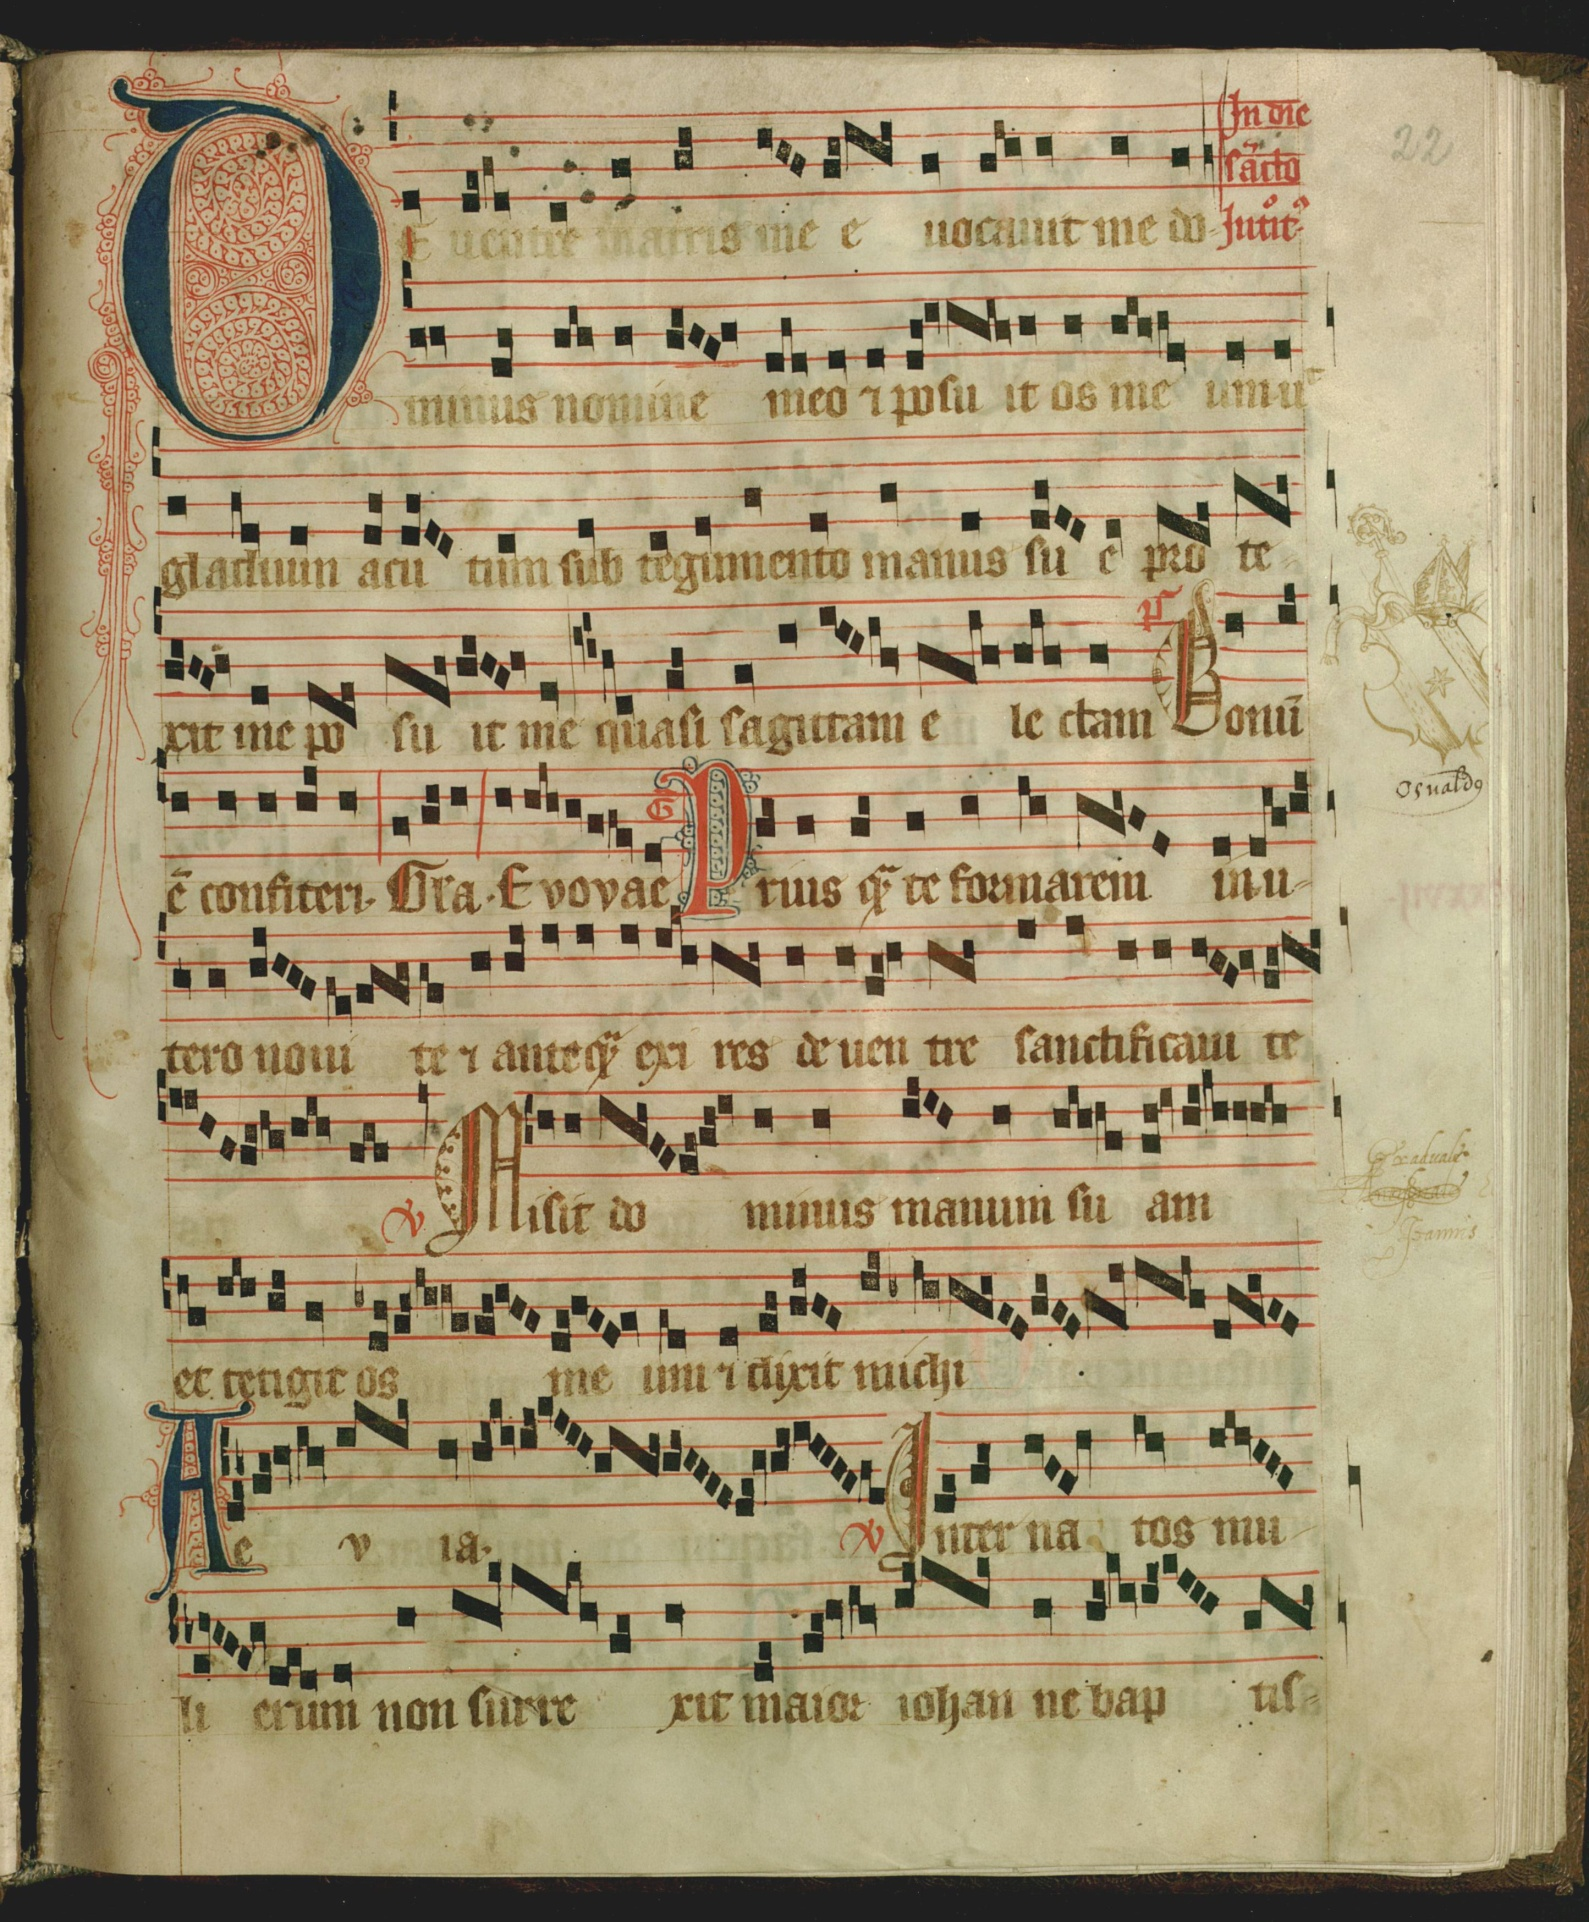 In die
sācto
Introit9
22
DE uentre matris me e uocauit me do-
minus nomine meo ⁊ posu it os me um ut
gladium acu tum sub tegumento manus su e pro te-
xit me po su it me quasi sagittam e le ctam ps Bonū
ē confiteri. Gła. Evovae G Prius qͣ te formarem in u-
tero noui te ⁊ anteqͣ exi res de uen tre sanctificaui te
V Misit do minus manum su am
et tetigit os me um ⁊ dixit michi
Ae v ia. V Inter na tos mu-
li erum non surre xit maior iohan ne bap tis-
Osualdg
Graduale
Joannis